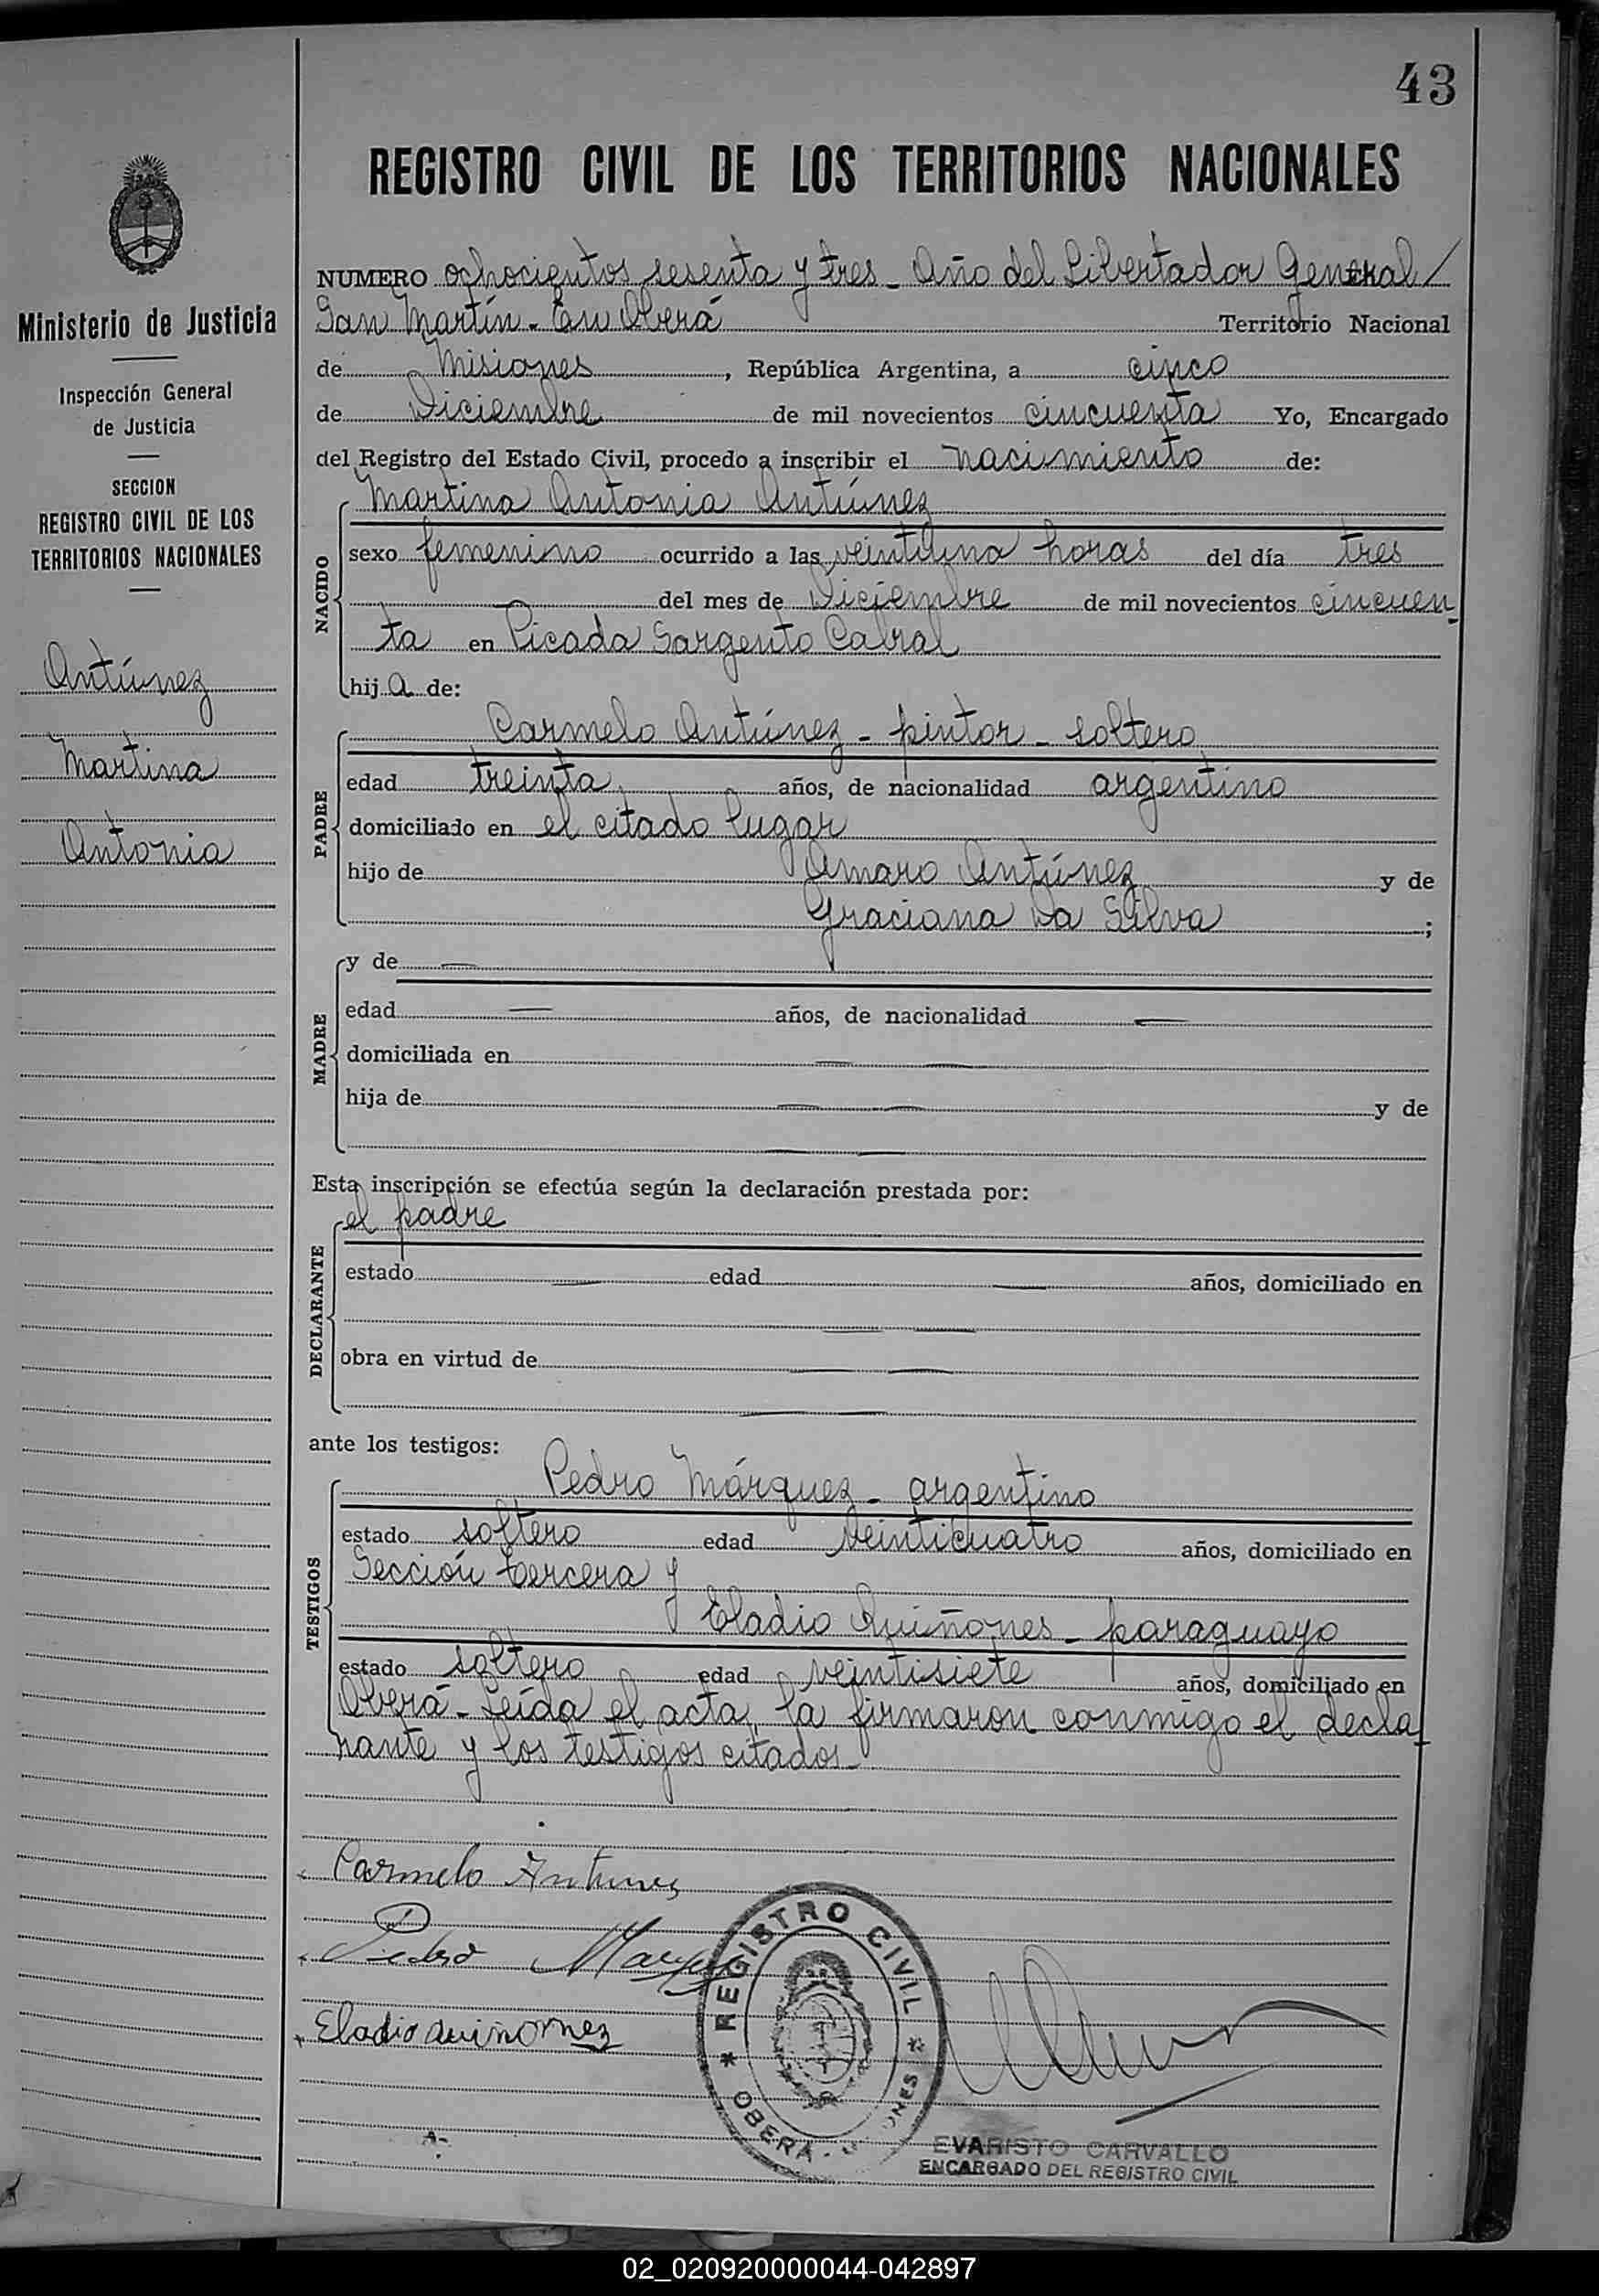 43
REGISTRO CIVIL DE LOS TERRITORIOS NACIONALES
Ministerio de Justicia
Inspección General
de Justicia
SECCION
REGISTRO CIVIL DE LOS
TERRITORIOS NACIONALES
Antúnez
Martina
Antonia
NUMERO ochocientos sesenta y tres_ Año del Libertador General/
San Martín_ En Oberá Territorio Nacional
de Misiones, República Argentina, a cinco
de Diciembre de mil novecientos cincuenta Yo, Encargado
del Registro del Estado Civil, procedo a inscribir el nacimiento de:
NACIDO
Martina Antonia Antúnez
sexo femenino ocurrido a las veintiuna horas del día tres
del mes de Diciembre de mil novecientos cincuen_
ta en Picada Sargento Cabral
hija de:
PADRE
Carmelo Antúnez_ pintor_ soltero
edad treinta años, de nacionalidad argentino
domiciliado en el citado lugar
hijo de Amaro Antúnez y de
Graciana Da Silva;
MADRE
y de —
edad — años, de nacionalidad —
domiciliada en — —
hija de — — y de
— —
Esta inscripción se efectúa según la declaración prestada por:
DECLARANTE
el padre
estado — edad — años, domiciliado en
— —
obra en virtud de — —
—
ante los testigos:
TESTIGOS
Pedro Márquez_ argentino
estado soltero edad veinticuatro años, domiciliado en
Sección tercera y
Eladio Quiñones_ paraguayo
estado soltero edad veintisiete años, domiciliado en
Oberá_ Leída el acta, la firmaron conmigo el decla_
rante y los testigos citados_
Carmelo Antunes
Pedro Marques
Eladio quiñonez
REGISTRO CIVIL
OBERA
EVARISTO CARVALLO
ENCARGADO DEL REGISTRO CIVIL
02_020920000044-042897